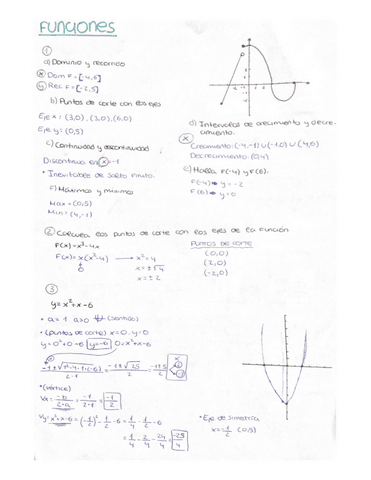 FUNCIONES
①
a) Dominio y recorrido
ⓧ Dom F = [-4,6]
ⓨ Rec F = [-2,5]
b) Puntos de corte con los ejes
Eje x = (3,0), (3,0), (6,0)
Eje y: (0,5)
c) Continuidad y discontinuidad
Discontinua en x=-1
* Inevitable de salto finito.
F) Máximos y mínimos
Max = (0,5)
Min = (4,-1)
d) Intervalos de crecimiento y decre-
cimiento.
ⓧ
Crecimiento: (-4,-1) U (-1,0) U (4,6)
Decrecimiento: (0,4)
e) Halla F(-4) y F(6).
F(-4) → y = -2
F(6) → y = 0
② Calcula los puntos de corte con los ejes de la función
F(x) = x³-4x
F(x) = x(x²-4) → x² = 4
0
x = ±√4
x = ±2
Puntos de corte
(0,0)
(2,0)
(-2,0)
③
y = x²+x-6
• a = 1 a>0
• (puntos de corte) x=0, y=0
y = 0²+0-6 y=-6 0 = x²+x-6
-1±√1²-4·1·(-6) / 2·1 = -1±√25 / 2 = -1±5 / 2
• (vértice)
Vx = -b / 2·a = -1 / 2·1 = -1/2
Vy: x²+x-6 = (-1/2)² - 1/2 - 6 = 1/4 - 1/2 - 6
= 1/4 - 2/4 - 24/4 = -25/4
• Eje de simetría
x = -1/2 (0,5)